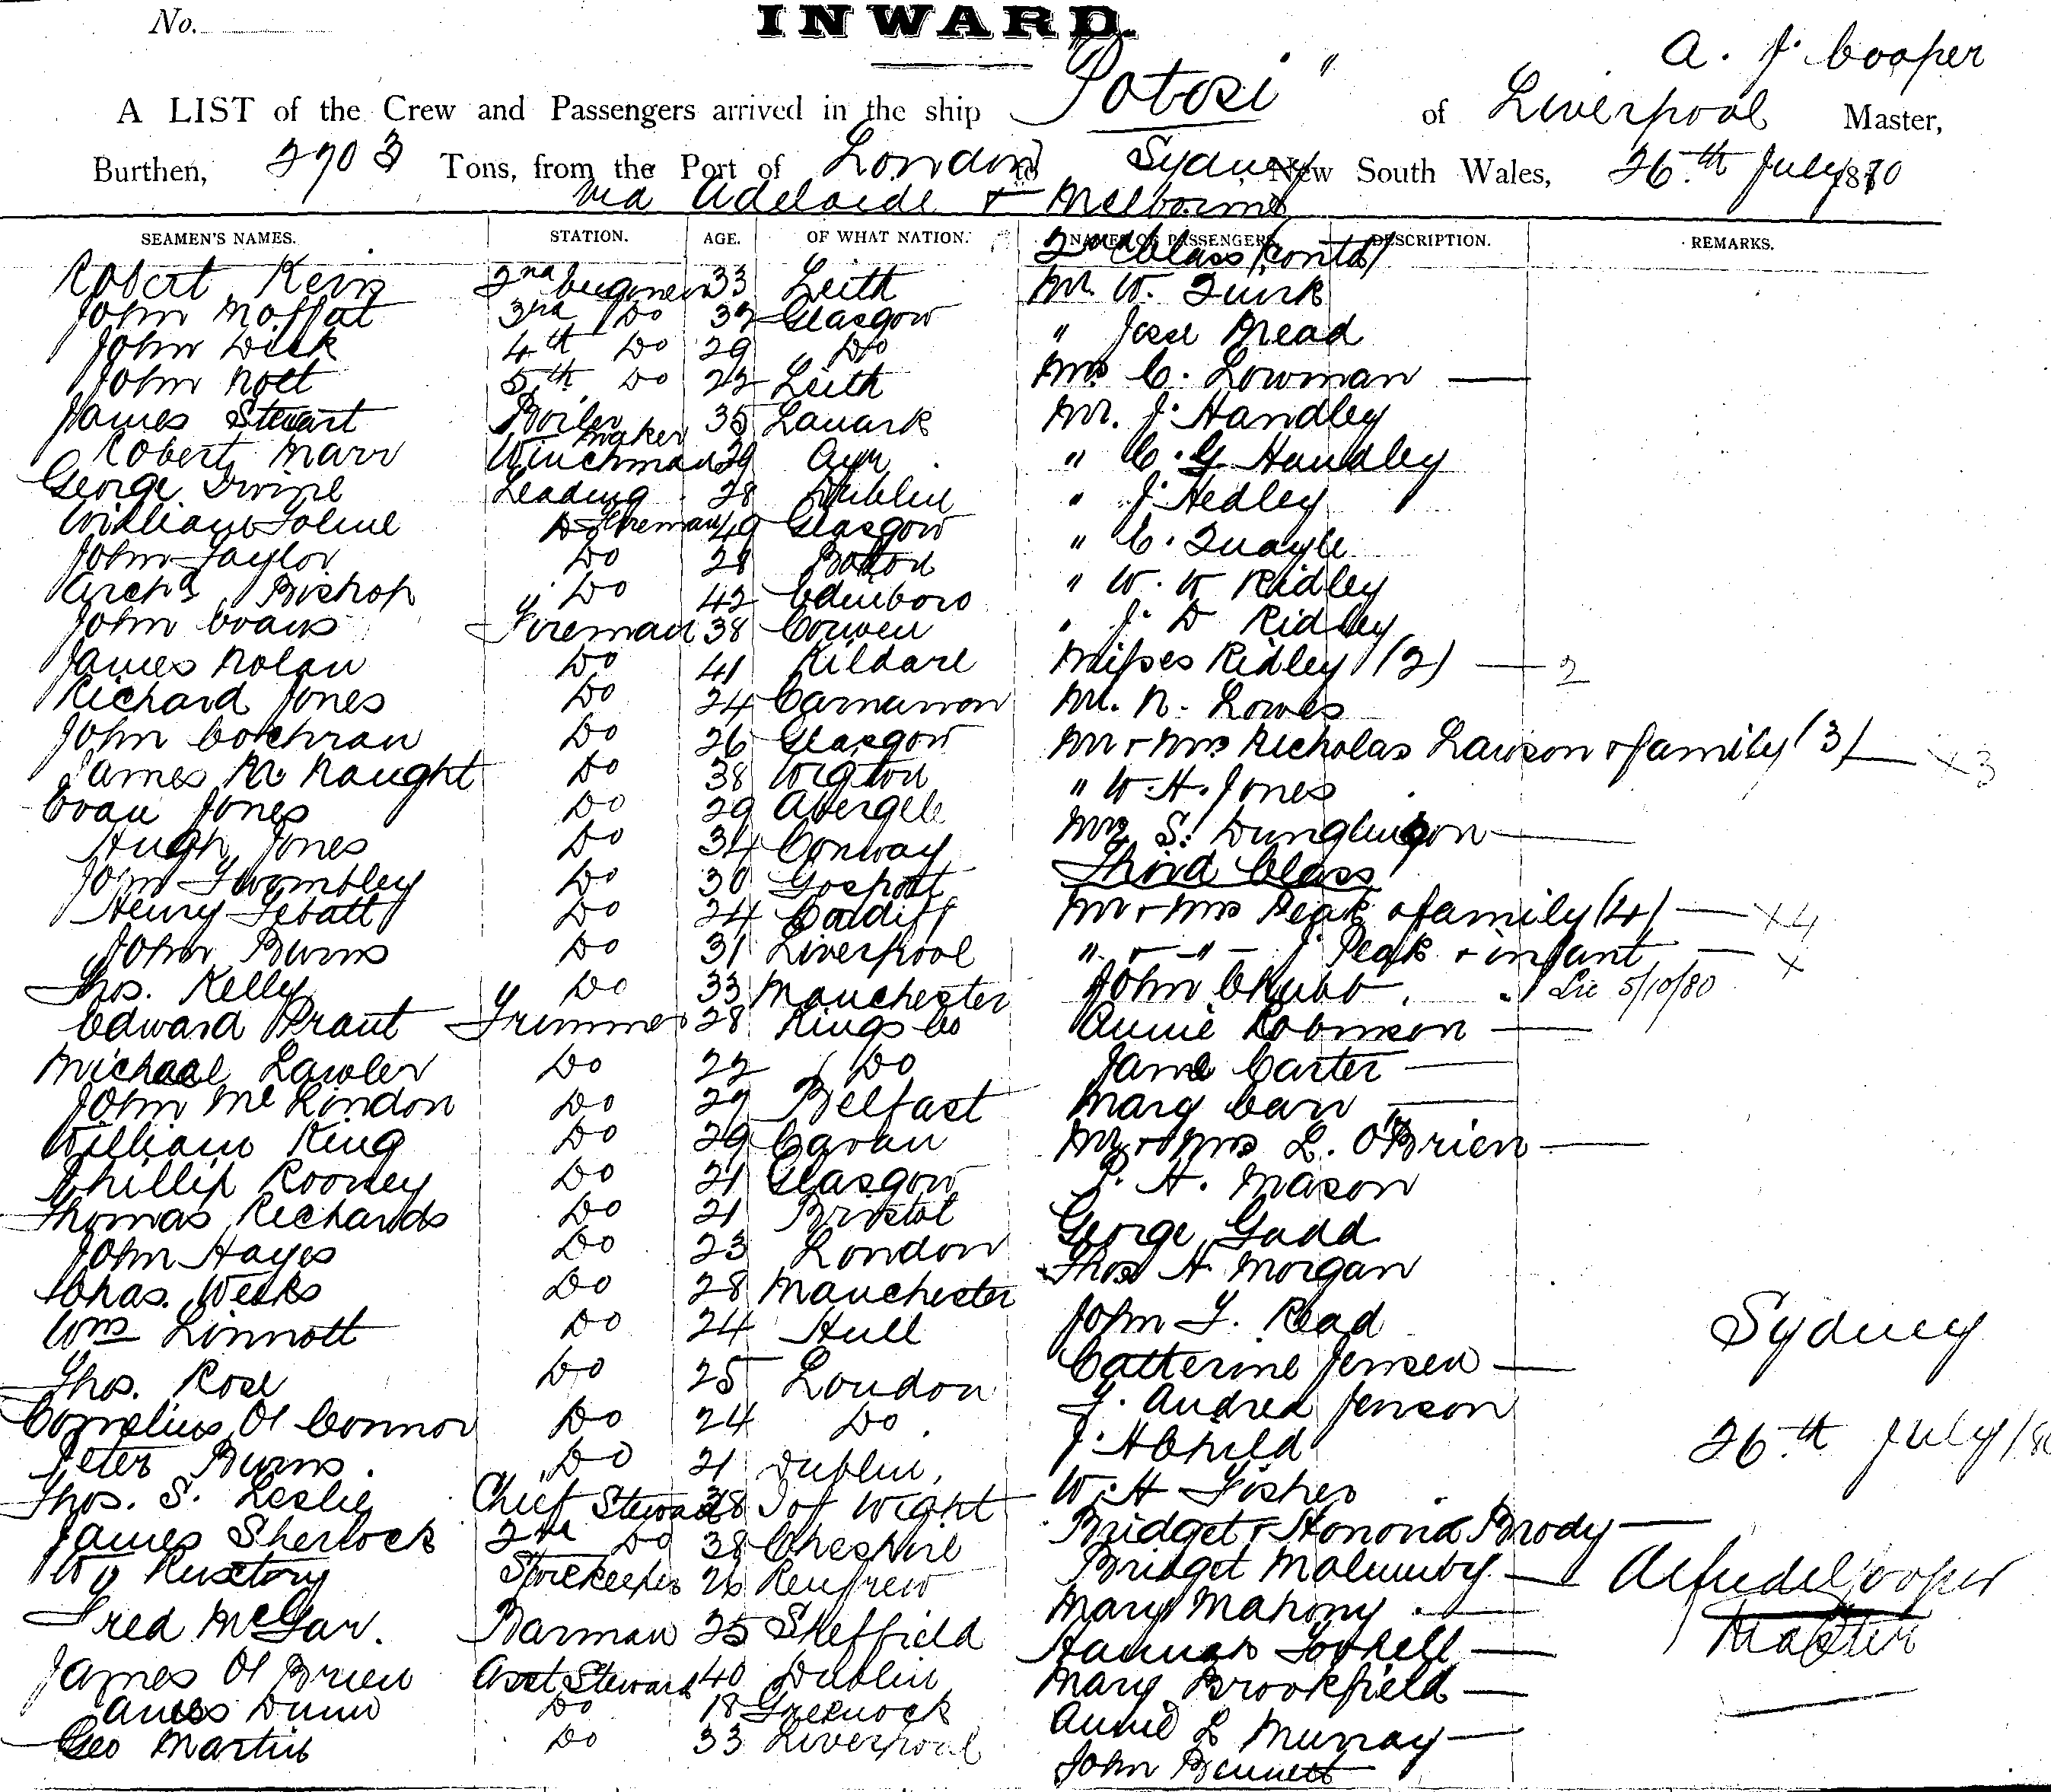 No.
INWARD.
A. J. Cooper
A LIST of the Crew and Passengers arrived in the ship "Potosi" of Liverpool Master,
Burthen, 2703 Tons, from the Port of London to Sydney, New South Wales, 26th July 1880
via Adelaide & Melbourne
SEAMEN'S NAMES. STATION. AGE. OF WHAT NATION. NAMES OF PASSENGERS. DESCRIPTION. REMARKS.
2nd Class (contd)
Robert Kein 2nd Engineer 33 Leith Mr. W. Quirk
John Moffat 3rd Do 32 Glasgow " Jesse Mead
John Dick 4th Do 29 Do Mrs C. Lowman —
John Nott 5th Do 22 Leith Mr. J. Handley
James Stewart Boiler maker 35 Lanark " C. G. Handley
Robert Marr Winchman 29 Ayr " J. Hedley
George Irvine Leading Fireman 28 Dublin " C. Quayle
William Do 49 Glasgow " W. W. Ridley
John Taylor Do 28 Bolton " J. D. Ridley
Archd Bishop Do 42 Edinboro Misses Ridley (2) — 2
John Evans Fireman 38 Corwen Mr. N. Lowes
James Nolan Do 41 Kildare Mr & Mrs Nicholas Lawson & family (3) — x3
Richard Jones Do 24 Carnarvon " W. H. Jones
John Cochran Do 26 Glasgow Mrs S.
James McNaught Do 38 Wigton Third Class
Evan Jones Do 29 Abergele Mr & Mrs Peak & family (4) — x4
Hugh Jones Do 34 Conway " & " J. Peak & infant — x
John Twombley Do 30 Gosport John Chubb Lic 5/10/80
Henry Tebatt Do 24 Cardiff Annie Robinson —
John Burns Do 31 Liverpool Jane Carter —
Thos. Kelly Do 33 Manchester Mary Carr —
Edward Grant Trimmer 28 Kings Co Mr & Mrs L. O'Brien —
Michael Lawler Do 22 Do P. H. Mason
John McKindon Do 27 Belfast George Gadd
William King Do 29 Cavan Thos H. Morgan
Phillip Rooney Do 21 Glasgow John T. Read
Thomas Richards Do 21 Bristol Catterine Jensen —
John Hayes Do 23 London J. Andrea Jenson
Chas. Weeks Do 28 Manchester J. H Child
Wm Linnott Do 24 Hull W. H Fisher
Thos. Rose Do 25 London Bridget & Honora Brody —
Cornelius O'Connor Do 24 Do Bridget —
Peter Burns Do 21 Dublin Mary Mahony —
Thos. S. Leslie Chief Steward 38 I of Wight Hannah —
James Sherlock 2nd Do 38 Cheshire Mary Brookfield —
Wm Storekeeper 26 Renfrew Annie L Murray —
Fred Barman 25 Sheffield John Bennett
James O'Brien Asst Steward 40 Dublin
James Dunn Do 18 Greenock
Geo Martin Do 33 Liverpool
Sydney
26th July/80
Alfred J Cooper
Master